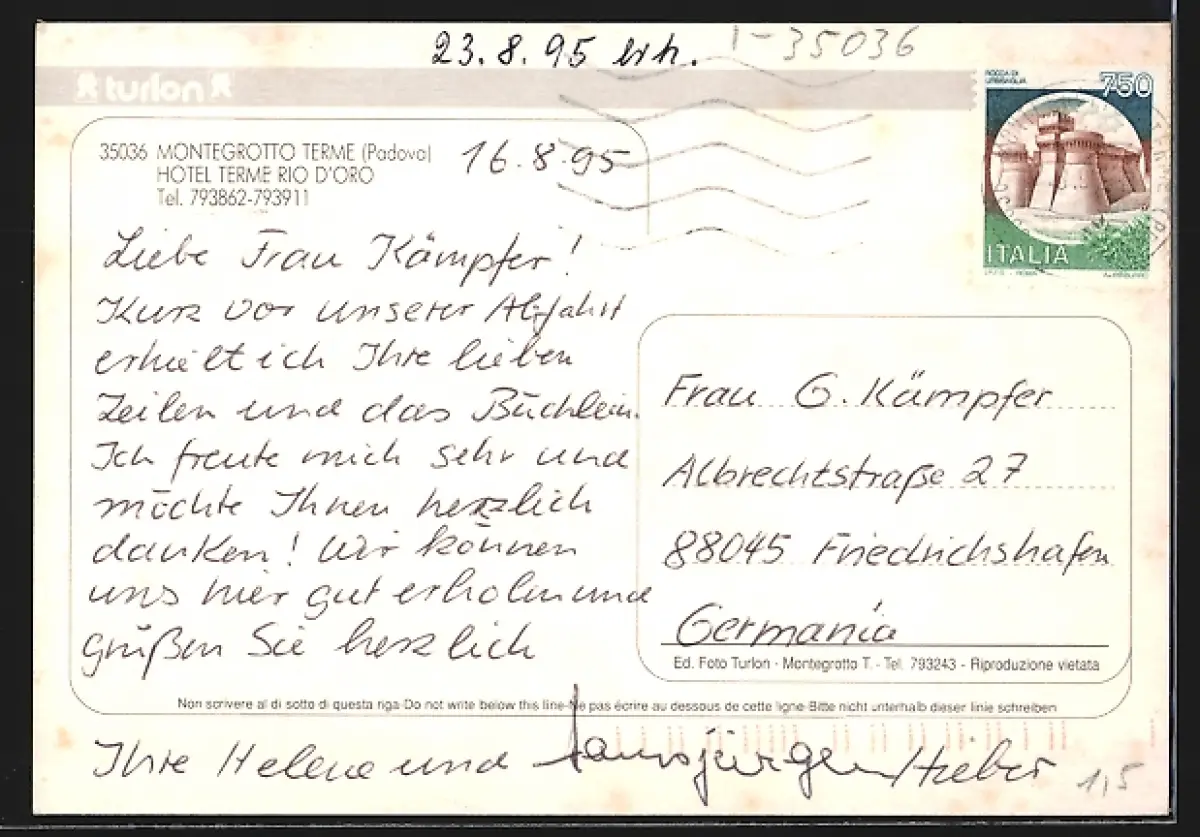 23.8.95 erh.
I-35036
turlon
35036 MONTEGROTTO TERME (Padova)
HOTEL TERME RIO D'ORO
Tel. 793862-793911
16.8.95
ROCCA DI URBISAGLIA
750
ITALIA
Liebe Frau Kämpfer!
Kurz vor unserer Abfahrt
erhielt ich Ihre lieben
Zeilen und das Büchlein.
Ich freute mich sehr und
möchte Ihnen herzlich
danken! Wir können
uns hier gut erholen und
grüßen Sie herzlich
Frau G. Kämpfer
Albrechtstraße 27
88045 Friedrichshafen
Germania
Ed. Foto Turlon - Montegrotto T. - Tel. 793243 - Riproduzione vietata
Non scrivere al di sotto di questa riga-Do not write below this line-Ne pas écrire au dessous de cette ligne-Bitte nicht unterhalb dieser linie schreiben
Ihre Helene und Hansjürgen Hieber
1,5